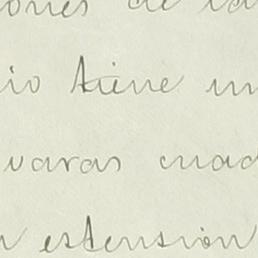 ones de la
io tiene un
varas cuad
n estension